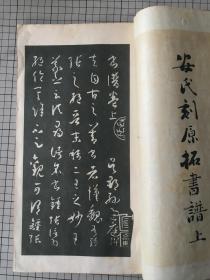 安氏刻原拓書譜上
書譜卷上
吳郡孫過庭撰
夫自古之善書者漢魏有鍾
張之絕晉末稱二王之妙王
羲之云頃尋諸名書鍾張信為
絕倫其餘不足觀可謂鍾張